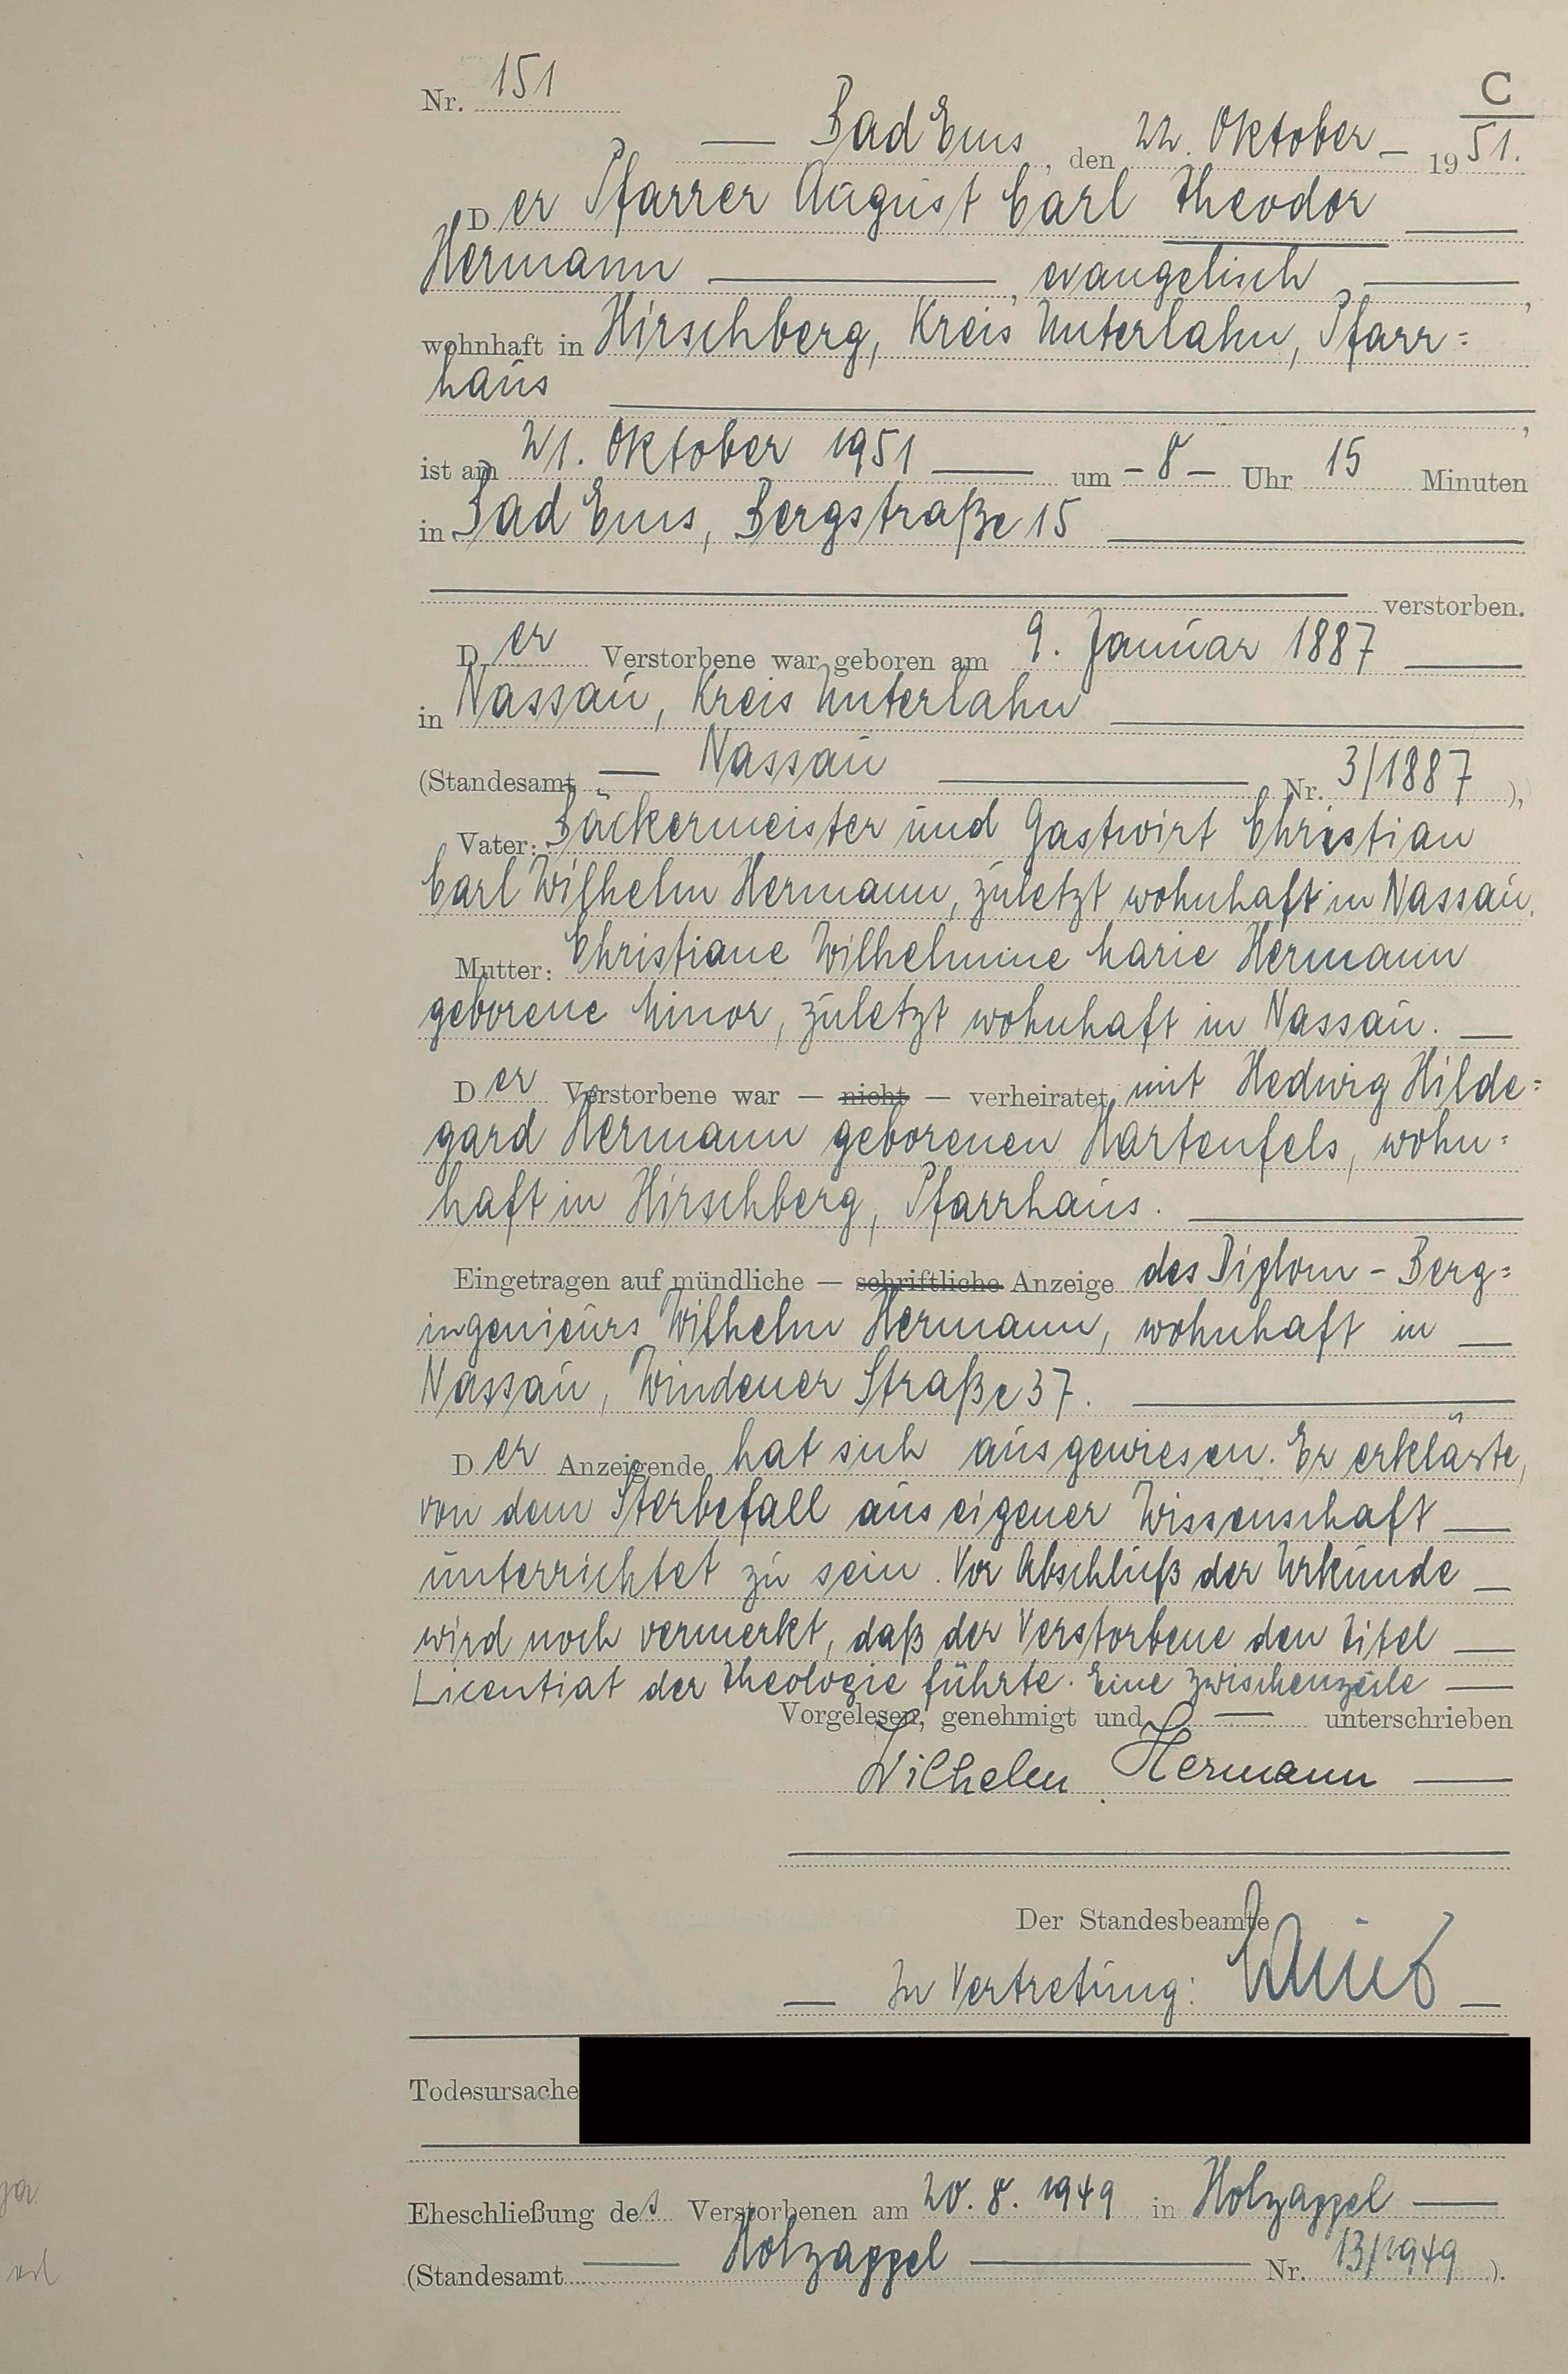 C
Nr. 151
Bad Ems, den 22. Oktober 1951.
Der Pfarrer August Carl Theodor
Hermann, evangelisch,
wohnhaft in Hirschberg, Kreis Unterlahn, Pfarr=
haus,
ist am 21. Oktober 1951 um - 8 - Uhr 15 Minuten
in Bad Ems, Bergstraße 15
verstorben.
Der Verstorbene war geboren am 9. Januar 1887
in Nassau, Kreis Unterlahn
(Standesamt Nassau Nr. 3/1887),
Vater: Bäckermeister und Gastwirt Christian
Carl Wilhelm Hermann, zuletzt wohnhaft in Nassau.
Mutter: Christiane Wilhelmine Marie Hermann
geborene Minor, zuletzt wohnhaft in Nassau.
Der Verstorbene war — nicht — verheiratet mit Hedwig Hilde=
gard Hermann geborenen Hartenfels, wohn=
haft in Hirschberg, Pfarrhaus.
Eingetragen auf mündliche — schriftliche Anzeige des Diplom-Berg=
ingenieurs Wilhelm Hermann, wohnhaft in
Nassau, Windener Straße 37.
Der Anzeigende hat sich ausgewiesen. Er erklärte,
von dem Sterbefall aus eigener Wissenschaft
unterrichtet zu sein. Vor Abschluß der Urkunde
wird noch vermerkt, daß der Verstorbene den Titel
Licentiat der Theologie führte. Eine Zwischenzeile
Vorgelesen, genehmigt und unterschrieben
Wilhelm Hermann
Der Standesbeamte
In Vertretung:
Todesursache
Eheschließung des Verstorbenen am 20. 8. 1949 in Holzappel
(Standesamt Holzappel Nr. 13/1949).